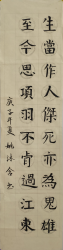 生當作人傑死亦為鬼雄
至今思項羽不肯過江東
庚子年夏